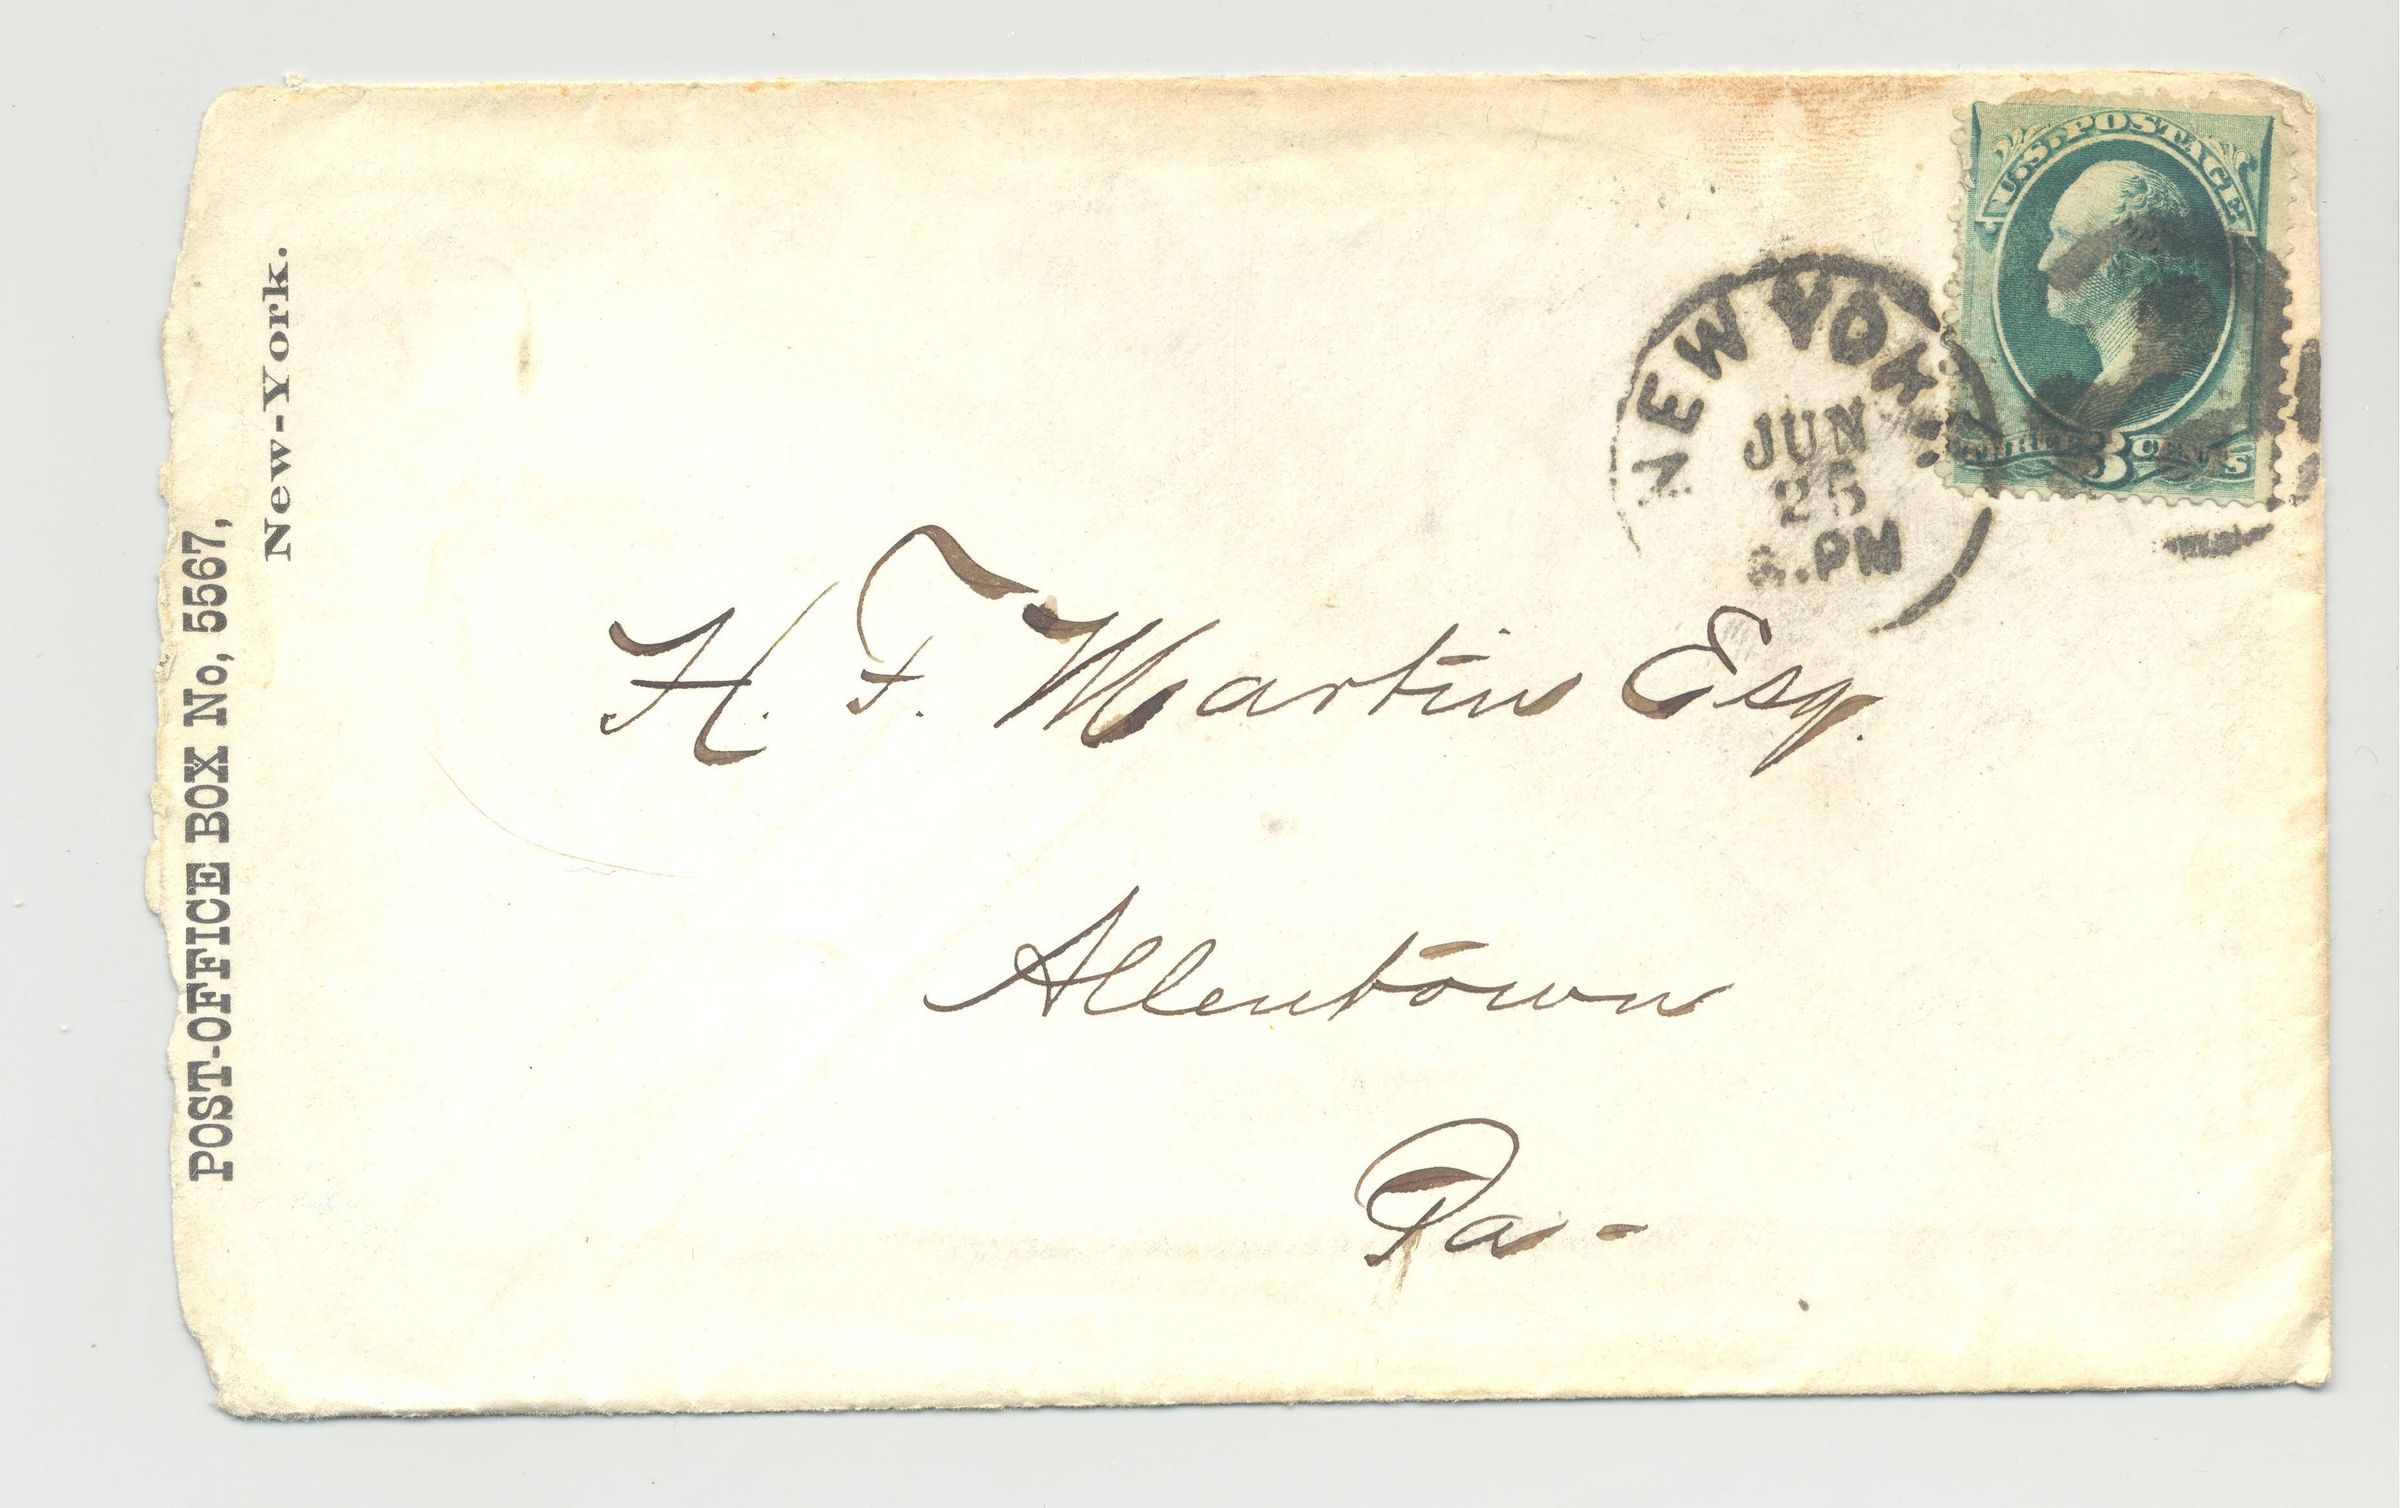 POST-OFFICE BOX No, 5567,
New-York.
U.S. POSTAGE
THREE 3 CENTS
NEW YORK
JUN
25
PM
H. F. Martin Esq.
Allentown
Pa-